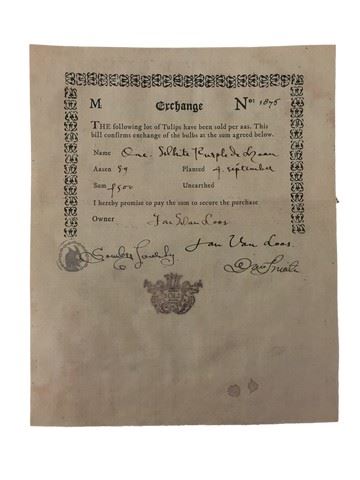 M Exchange No: 1876
THE following lot of Tulips have been sold per aas. This
bill confirms exchange of the bulbs at the sum agreed below.
Name One White Purple de
Aasen 59 Planted 4 September
Sum ƒ500 Unearthed
I hereby promise to pay the sum to secure the purchase
Owner Jan Van Loos
Jan Van Loos